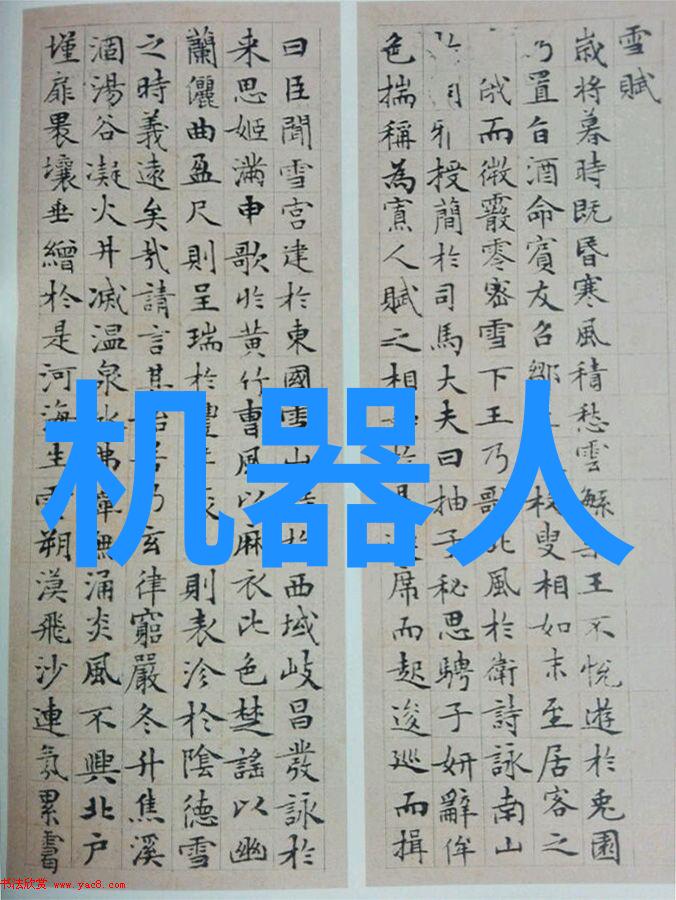 雪賦
歲將暮時既昬寒風積愁雲緐王不悅遊於兔園
乃置旨酒命賓友召鄒枚叟相如末至居客之
俄而微霰零密雪下王乃歌北風於衛詩詠南山
授簡於司馬大夫曰抽子秘思騁子妍辭侔
色揣稱為寡人賦之相於席而起逡巡而揖
曰臣聞雪宮建於東國雪山於西域岐昌發詠於
来思姬滿申歌於黃竹曹風以麻衣比色楚謠以幽
蘭儷曲盈尺則呈瑞於豐則表沴於陰德雪
之時義遠矣哉請言其始若乃玄律窮嚴冬升焦溪
涸湯谷凝火井滅溫泉冰沸潭無涌炎風不興北戶
墐扉壤垂繒於是河海生雲朔漠飛沙連氛累靄
机器人
书法欣赏 www.yac8.com